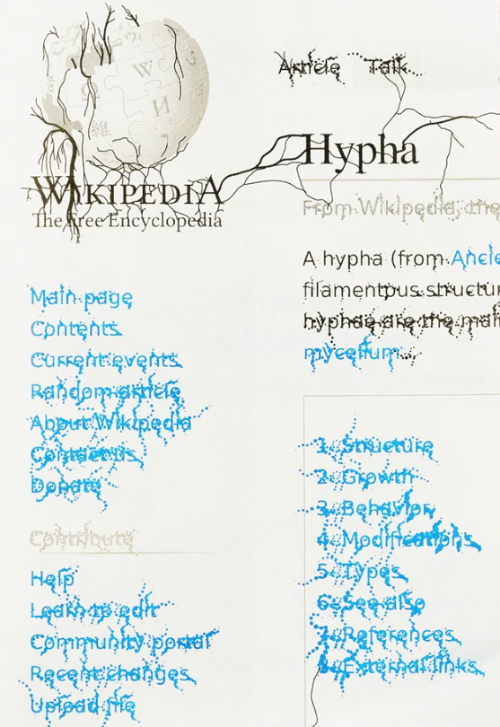 Article Talk
WIKIPEDIA
The Free Encyclopedia
Hypha
From Wikipedia, the
A hypha (from Ancie
filamentous structur
hyphae are the main
mycelium
Main page
Contents
Current events
Random article
About Wikipedia
Contact us
Donate
Contribute
Help
Learn to edit
Community portal
Recent changes
Upload file
1. Structure
2. Growth
3. Behavior
4. Modifications
5. Types
6. See also
7. References
8. External links